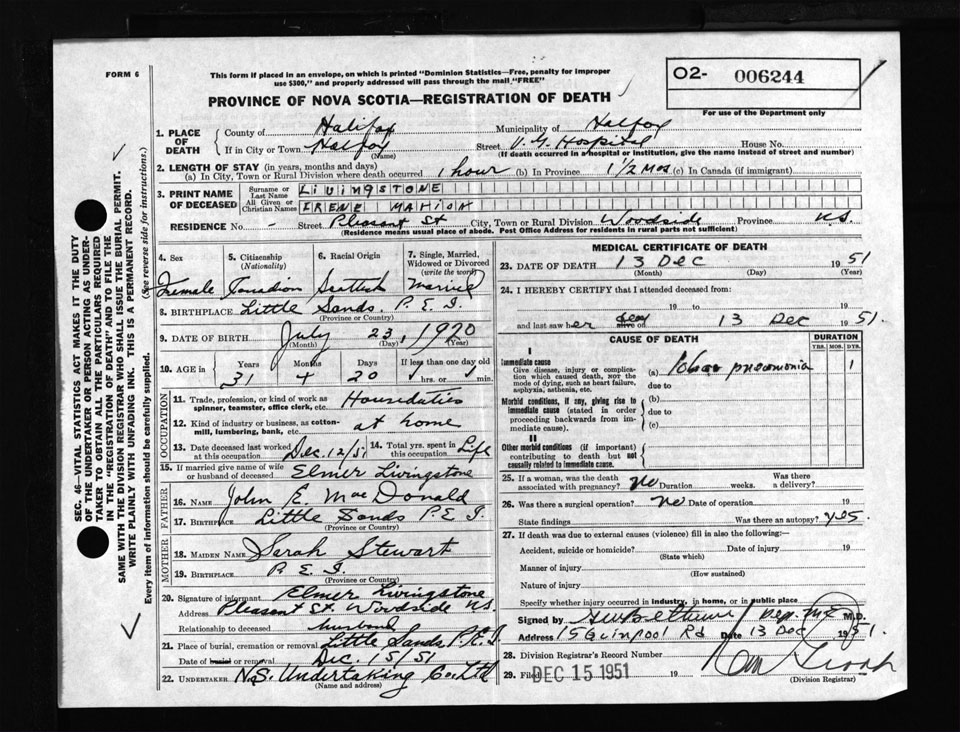 FORM 6
This form if placed in an envelope, on which is printed "Dominion Statistics—Free, penalty for improper
use $300," and properly addressed will pass through the mail "FREE"
02- 006244
For use of the Department only
PROVINCE OF NOVA SCOTIA—REGISTRATION OF DEATH
SEC. 46—VITAL STATISTICS ACT MAKES IT THE DUTY
OF THE UNDERTAKER OR PERSON ACTING AS UNDER-
TAKER TO OBTAIN ALL THE PARTICULARS REQUIRED
IN THE "REGISTRATION OF DEATH" AND TO FILE THE
SAME WITH THE DIVISION REGISTRAR WHO SHALL ISSUE THE BURIAL PERMIT.
WRITE PLAINLY WITH UNFADING INK. THIS IS A PERMANENT RECORD.
Every item of information should be carefully supplied. (See reverse side for instructions.)
1. PLACE OF DEATH County of Halifax Municipality of Halifax
If in City or Town Halifax (Name) Street V.G. Hospital House No.
(If death occurred in a hospital or institution, give the name instead of street and number)
2. LENGTH OF STAY (in years, months and days)
(a) In City, Town or Rural Division where death occurred 1 hour (b) In Province 1 1/2 Mos (c) In Canada (if immigrant)
3. PRINT NAME OF DECEASED Surname or Last Name LIVINGSTONE
All Given or Christian Names IRENE MARION
RESIDENCE No. - Street Pleasant St City, Town or Rural Division Woodside Province N.S.
(Residence means usual place of abode. Post Office Address for residents in rural parts not sufficient)
4. Sex Female
5. Citizenship (Nationality) Canadian
6. Racial Origin Scottish
7. Single, Married, Widowed or Divorced (write the word) Married
8. BIRTHPLACE Little Sands, P.E.I.
(Province or Country)
9. DATE OF BIRTH July 23, 1920
(Month) (Day) (Year)
10. AGE in Years Months Days If less than one day old
31 4 20 hrs. or min.
OCCUPATION
11. Trade, profession, or kind of work as spinner, teamster, office clerk, etc. Houseduties
12. Kind of industry or business, as cotton-mill, lumbering, bank, etc. at home
13. Date deceased last worked at this occupation Dec. 12/51 14. Total yrs. spent in this occupation Life
15. If married give name of wife or husband of deceased Elmer Livingstone
FATHER
16. NAME John E. MacDonald
17. BIRTHPLACE Little Sands P.E.I
(Province or Country)
MOTHER
18. MAIDEN NAME Sarah Stewart
19. BIRTHPLACE P.E.I.
(Province or Country)
20. Signature of informant Elmer Livingstone
Address Pleasant St. Woodside N.S.
Relationship to deceased husband
21. Place of burial, cremation or removal Little Sands, P.E.I
Date of burial or removal Dec. 15/51
22. UNDERTAKER N.S. Undertaking Co. Ltd
(Name and address)
MEDICAL CERTIFICATE OF DEATH
23. DATE OF DEATH 13 Dec 1951
(Month) (Day) (Year)
24. I HEREBY CERTIFY that I attended deceased from:
19 to 19
and last saw her alive on dead 13 Dec 1951.
CAUSE OF DEATH DURATION
YRS. MOS. DYS.
I
Immediate cause
Give disease, injury or complication which caused death, not the mode of dying, such as heart failure, asphyxia, asthenia, etc.
(a) Lobar pneumonia 1
due to
Morbid conditions, if any, giving rise to immediate cause (stated in order proceeding backwards from immediate cause).
(b)
due to
(c)
II
Other morbid conditions (if important) contributing to death but not causally related to immediate cause.
25. If a woman, was the death associated with pregnancy? no Duration weeks. Was there a delivery?
26. Was there a surgical operation? no Date of operation 19
State findings Was there an autopsy? yes.
27. If death was due to external causes (violence) fill in also the following:—
Accident, suicide or homicide? Date of injury 19
(State which)
Manner of injury
(How sustained)
Nature of injury
Specify whether injury occurred in industry, in home, or in public place
Signed by Dep. M.E. M.D.
Address 15 Quinpool Rd Date 13 Dec 1951.
28. Division Registrar's Record Number
29. Filed DEC 15 1951 19
(Division Registrar)